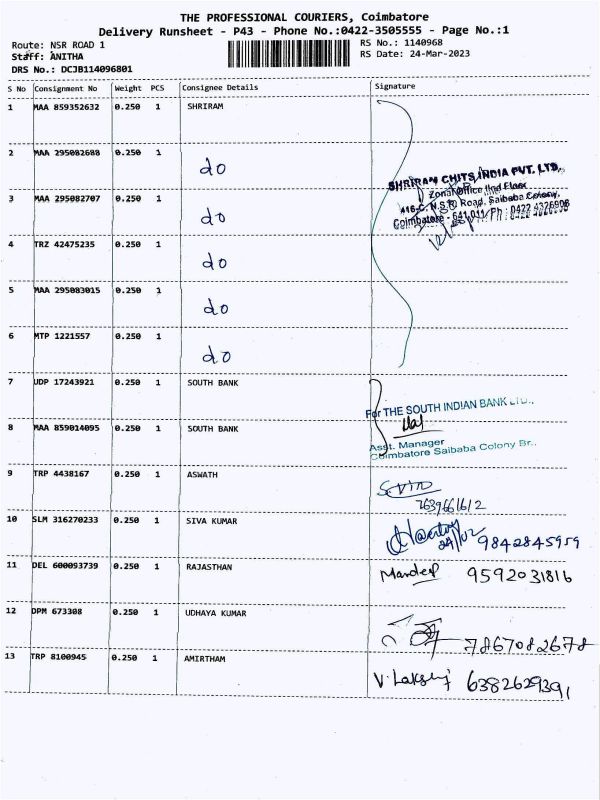 THE PROFESSIONAL COURIERS, Coimbatore
Delivery Runsheet - P43 - Phone No.:0422-3505555 - Page No.:1
Route: NSR ROAD 1 RS No.: 1140968
Staff: ANITHA RS Date: 24-Mar-2023
DRS No.: DCJB114096801
S No Consignment No Weight PCS Consignee Details Signature
1 MAA 859352632 0.250 1 SHRIRAM
2 MAA 295082688 0.250 1 do
SHRIRAM CHITS INDIA PVT. LTD.,
Zonal Office IInd Floor
416-C, N.S.R Road, Saibaba Colony,
Coimbatore - 641 011 Ph : 0422 4326906
3 MAA 295082707 0.250 1 do
4 TRZ 42475235 0.250 1 do
5 MAA 295083015 0.250 1 do
6 MTP 1221557 0.250 1 do
7 UDP 17243921 0.250 1 SOUTH BANK
For THE SOUTH INDIAN BANK LTD.,
8 MAA 859014095 0.250 1 SOUTH BANK
Asst. Manager
Coimbatore Saibaba Colony Br..
9 TRP 4438167 0.250 1 ASWATH
7639661612
10 SLM 316270233 0.250 1 SIVA KUMAR 9842845959
11 DEL 600093739 0.250 1 RAJASTHAN Mandeep 9592031816
12 DPM 673308 0.250 1 UDHAYA KUMAR 7867082678
13 TRP 8100945 0.250 1 AMIRTHAM V. Lakshmi 6382629391